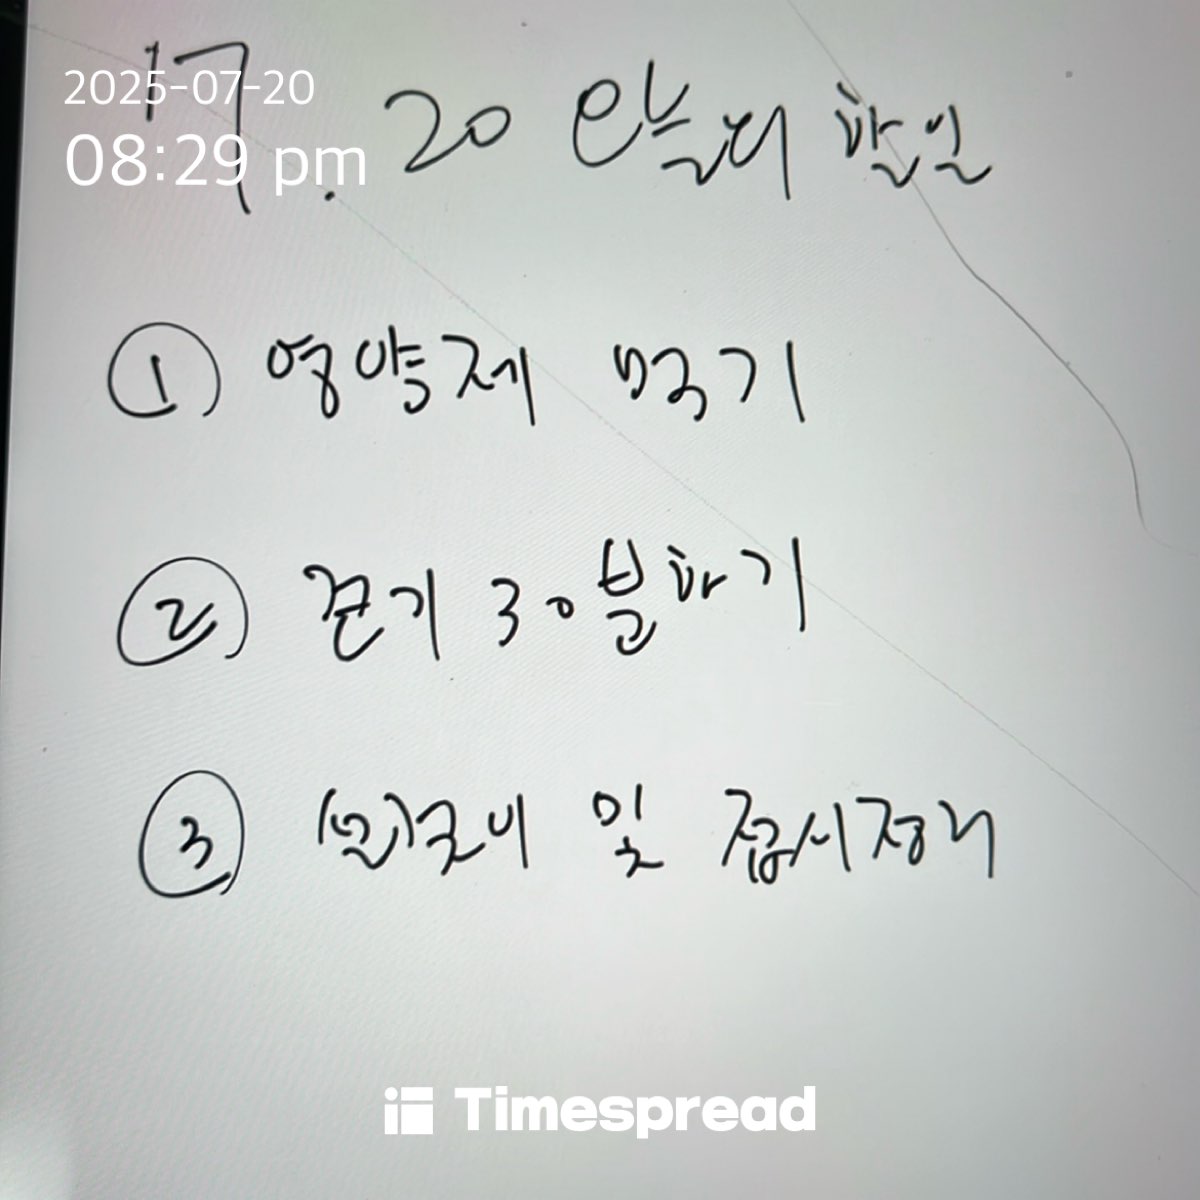 2025-07-20
08:29 pm
7. 20 오늘의 할일
① 영양제 먹기
② 걷기 30분하기
③ 및 접시정리
Timespread